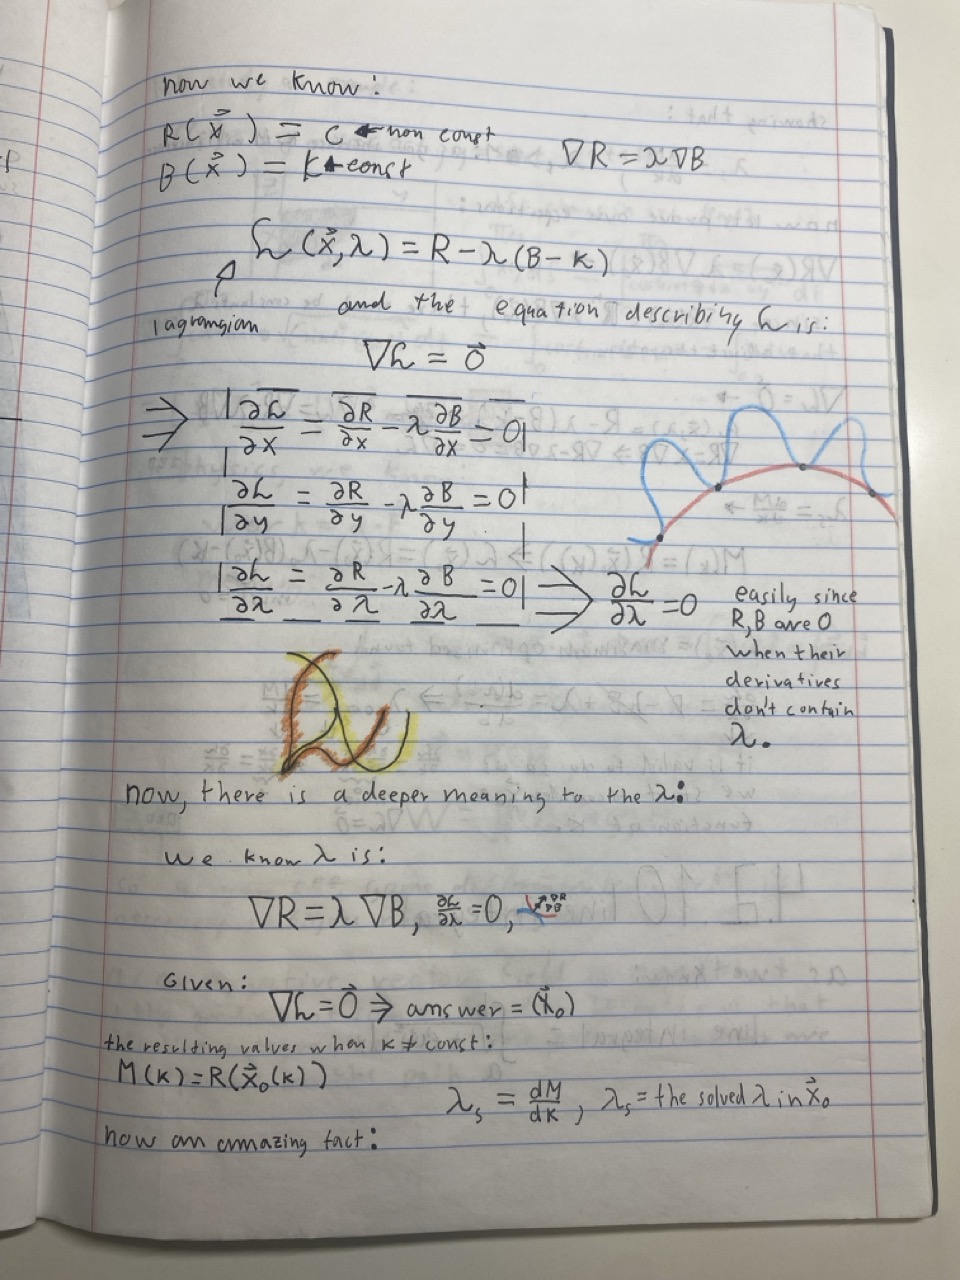 now we know:
R(x⃗) = C ← non const
B(x⃗) = K ← const
∇R = λ∇B
h(x⃗,λ) = R − λ(B − K)
lagrangian
and the equation describing h is:
∇h = 0⃗
⇒ ∂h/∂x = ∂R/∂x − λ ∂B/∂x = 0
∂h/∂y = ∂R/∂y − λ ∂B/∂y = 0
∂h/∂λ = ∂R/∂λ − λ ∂B/∂λ = 0 ⇒ ∂h/∂λ = 0
easily since
R, B are 0
when their
derivatives
don't contain
λ.
now, there is a deeper meaning to the λ:
we know λ is:
∇R = λ ∇B, ∂h/∂λ = 0, ∇R ∇B
Given:
∇h = 0⃗ ⇒ answer = (x⃗₀)
the resulting values when K ≠ const:
M(K) = R(x⃗₀(K))
λₛ = dM/dK, λₛ = the solved λ in x⃗₀
now an amazing fact: